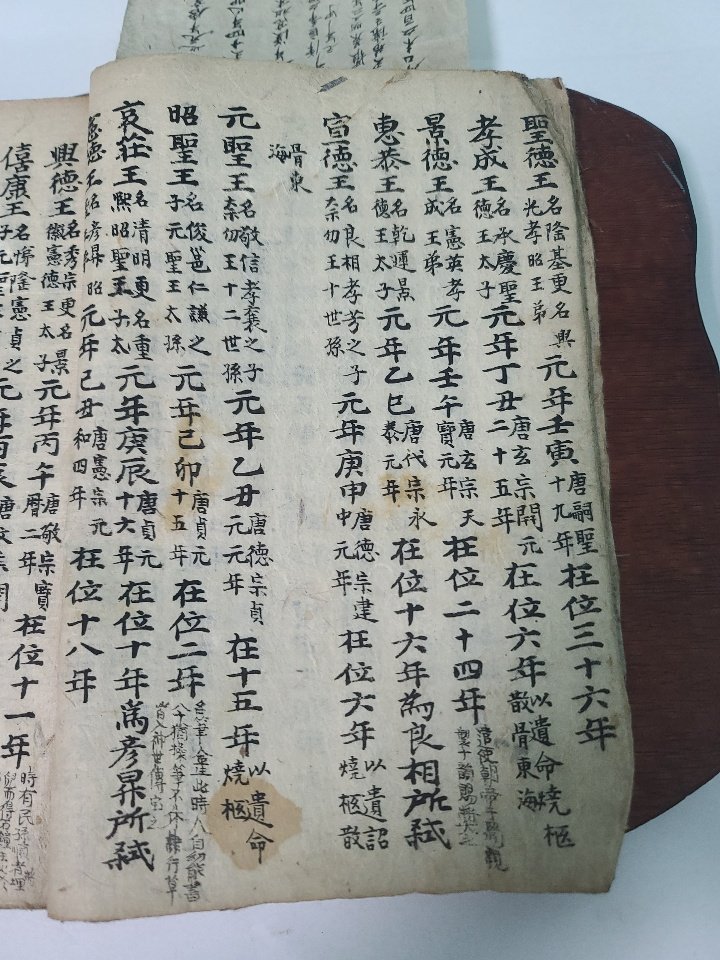 聖德王 名隆基更名興光孝昭王弟 元年壬寅 唐嗣聖十九年 在位三十六年
孝成王 名承慶聖德王太子 元年丁丑 唐玄宗開元二十五年 在位六年 以遺命燒柩散骨東海
景德王 名憲英孝成王弟 元年壬午 唐玄宗天寶元年 在位二十四年
惠恭王 名乾運景德王太子 元年乙巳 唐代宗永泰元年 在位十六年為良相所弑
宣德王 名良相孝芳之子奈勿王十世孫 元年庚申 唐德宗建中元年 在位六年 以遺詔燒柩散
骨東海
元聖王 名敬信孝襄之子奈勿王十二世孫 元年乙丑 唐德宗貞元元年 在十五年 以遺命燒柩
昭聖王 名俊邕仁謙之子元聖王太孫 元年己卯 唐貞元十五年 在位二年
哀莊王 名清明更名重熙昭聖王太子 元年庚辰 唐貞元十六年 在位十年為彦昇所弑
憲德王 名彦昇昭 元年己丑 唐憲宗元和四年 在位十八年
興德王 名秀宗更名景徽憲德王太子 元年丙午 唐敬宗寶曆二年 在位十一年
僖康王 名悌隆憲貞之子元聖